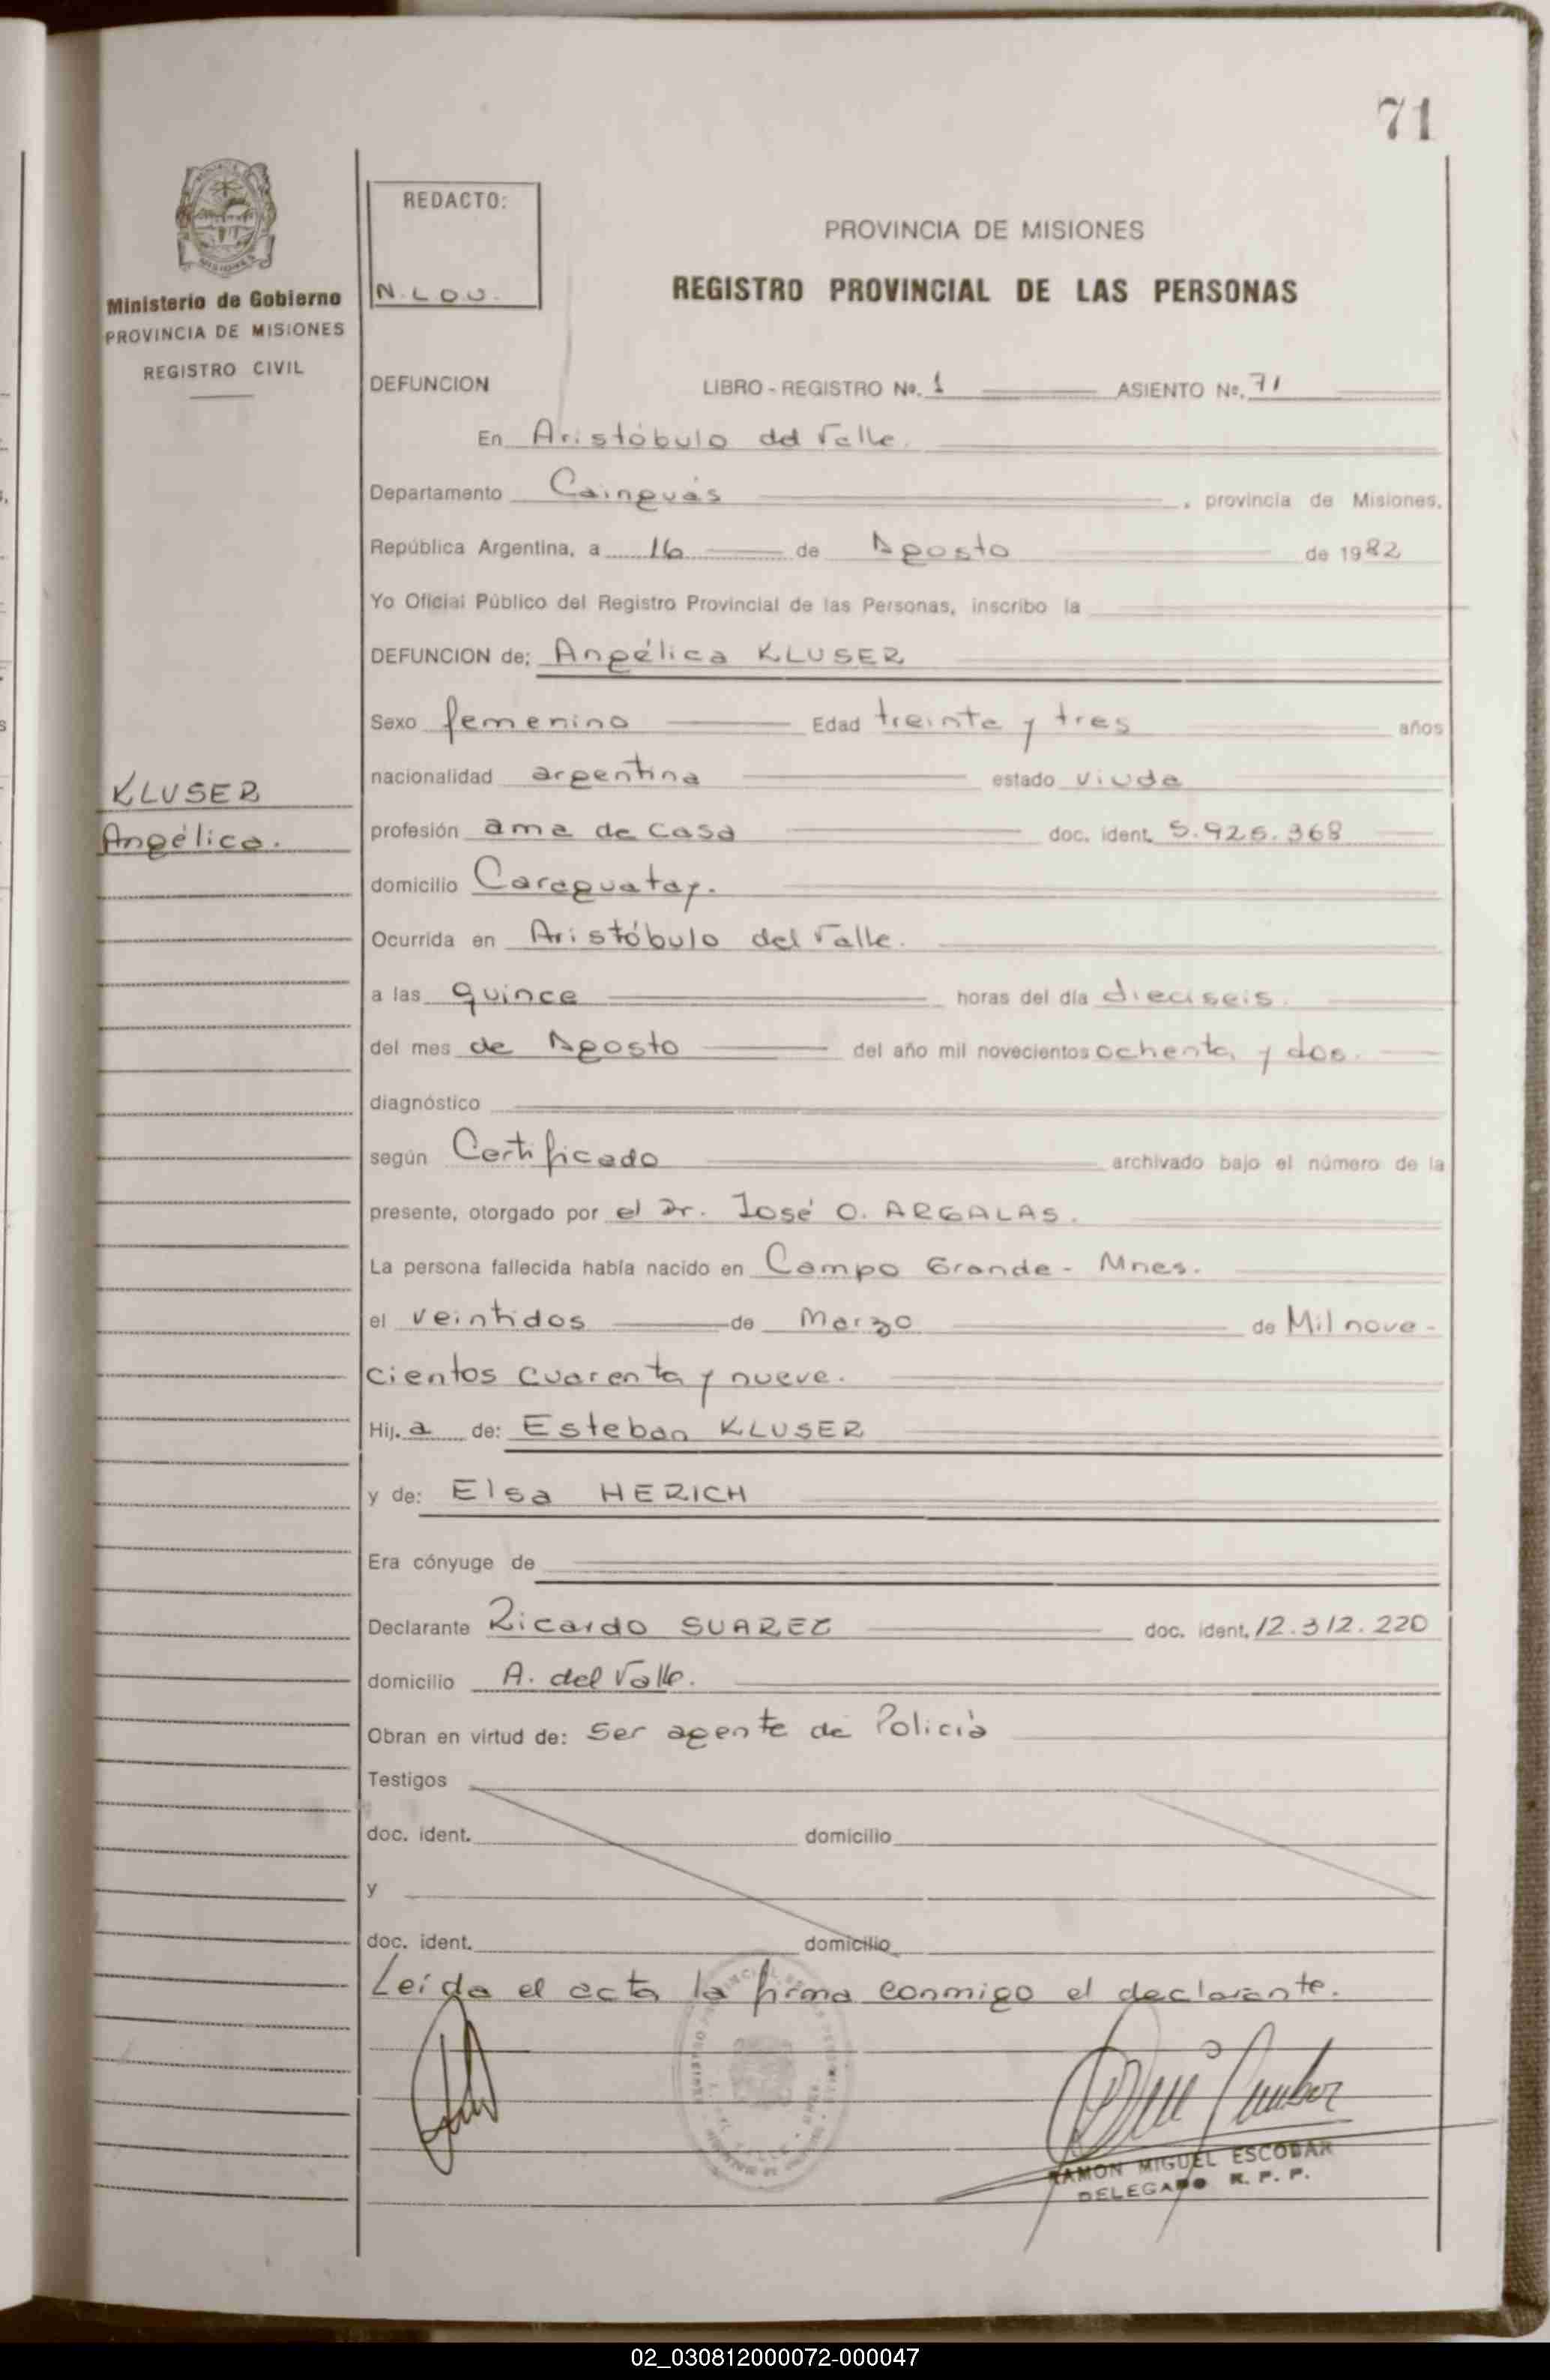 71
REDACTO:
N. LOU.
PROVINCIA DE MISIONES
REGISTRO PROVINCIAL DE LAS PERSONAS
Ministerio de Gobierno
PROVINCIA DE MISIONES
REGISTRO CIVIL
DEFUNCION LIBRO - REGISTRO Nº. 1 ASIENTO Nº. 71
En Aristóbulo del Valle.
Departamento Cainguás , provincia de Misiones.
República Argentina, a 16 de Agosto de 1982
Yo Oficial Público del Registro Provincial de las Personas, inscribo la
DEFUNCION de; Angélica KLUSER
Sexo femenino Edad treinta y tres años
nacionalidad argentina estado viuda
KLUSER
Angélica.
profesión ama de casa doc. ident. 5.925.368
domicilio Caraguatay.
Ocurrida en Aristóbulo del Valle.
a las quince horas del día dieciseis.
del mes de Agosto del año mil novecientos ochenta y dos.
diagnóstico
según Certificado archivado bajo el número de la
presente, otorgado por el Dr. José O. ARGALAS.
La persona fallecida había nacido en Campo Grande - Mnes.
el veintidos de Marzo de Mil nove-
cientos cuarenta y nueve.
Hij. a de: Esteban KLUSER
y de: Elsa HERICH
Era cónyuge de
Declarante Ricardo SUAREZ doc. ident. 12.312.220
domicilio A. del Valle.
Obran en virtud de: Ser agente de Policía
Testigos
doc. ident. domicilio
y
doc. ident. domicilio
Leída el acta la firma conmigo el declarante.
RAMON MIGUEL ESCOBAR
DELEGADO R. P. P.
02_030812000072-000047